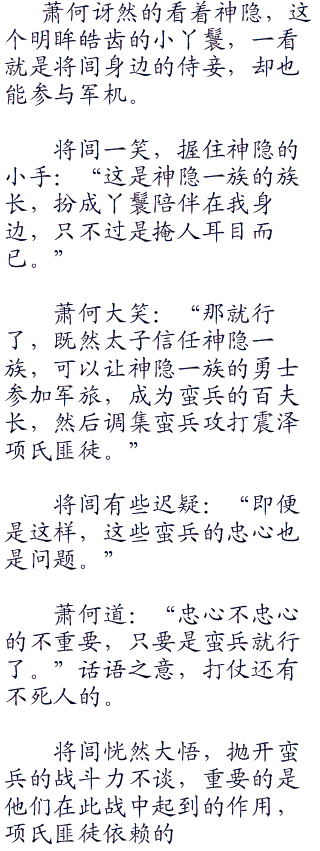 萧何讶然的看着神隐，这
个明眸皓齿的小丫鬟，一看
就是将闾身边的侍妾，却也
能参与军机。
将闾一笑，握住神隐的
小手：“这是神隐一族的族
长，扮成丫鬟陪伴在我身
边，只不过是掩人耳目而
已。”
萧何大笑：“那就行
了，既然太子信任神隐一
族，可以让神隐一族的勇士
参加军旅，成为蛮兵的百夫
长，然后调集蛮兵攻打震泽
项氏匪徒。”
将闾有些迟疑：“即便
是这样，这些蛮兵的忠心也
是问题。”
萧何道：“忠心不忠心
的不重要，只要是蛮兵就行
了。”话语之意，打仗还有
不死人的。
将闾恍然大悟，抛开蛮
兵的战斗力不谈，重要的是
他们在此战中起到的作用，
项氏匪徒依赖的